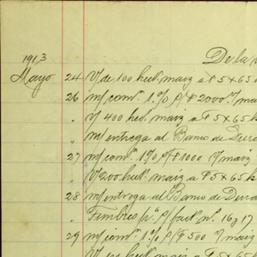 De la
1913
Mayo 24 V/ de 100 hect. maiz a $5 x 65
26 m/ com. 1% s/ $2000 º/ma
" V/ 400 hect. maiz a $5 x 65
" m/ entrega al Banco de Du
27 m/ com. 1% s/ $1000 º/maiz
" V/ 200 hect. maiz a $5 x 65
28 m/ entrega al Banco de Du
" Timbres p. fact. nº. 16 y 17
29 m/ com. 1% s/ $500 º/maiz